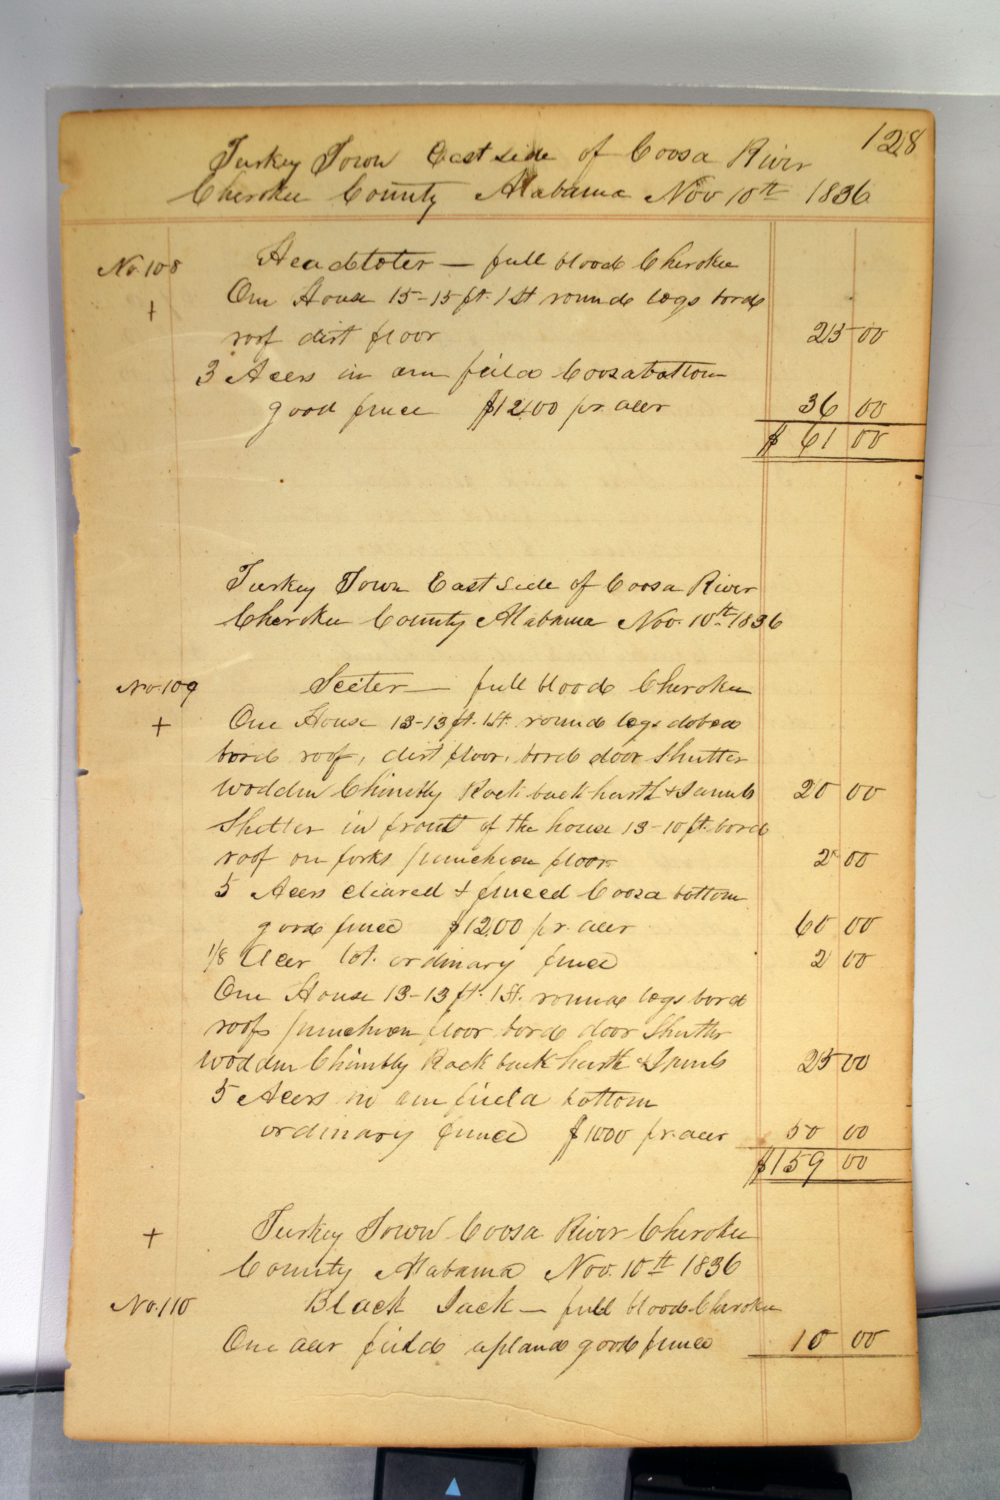 128
Turkey Town East side of Coosa River
Cherokee County Alabama Nov 10th 1836
No. 108 Headtoter — full blood Cherokee
+ One House 15-15 ft. 1 St round logs bord
roof dirt floor 25 00
3 Acers in one feild Coosa bottom
good fence $12.00 pr. acer 36 00
$ 61 00
Turkey Town East Side of Coosa River
Cherokee County Alabama Nov. 10th 1836
No. 109 Seeter — full blood Cherokee
+ One House 13-13 ft. 1 St. round logs dobed
bord roof, dirt floor, bord door Shutter
wodden Chimbly Rock back harth & Jambs 20 00
Shelter in front of the house 13-10 ft. bord
roof on forks puncheon floor 2 00
5 Acers cleared & fenced Coosa bottom
good fence $12.00 pr. acer 60 00
1/8 Acer lot. ordinary fence 2 00
One House 13-13 ft. 1 St. round logs bord
roof puncheon floor bord door Shutter
wodden Chimbly Rock back harth & Jambs 25 00
5 Acers in one field bottom
ordinary fence $1000 pr. acer 50 00
$159 00
+ Turkey Town Coosa River Cherokee
County Alabama Nov. 10th 1836
No. 110 Black Jack — full blood Cherokee
One acer feild upland good fence 10 00